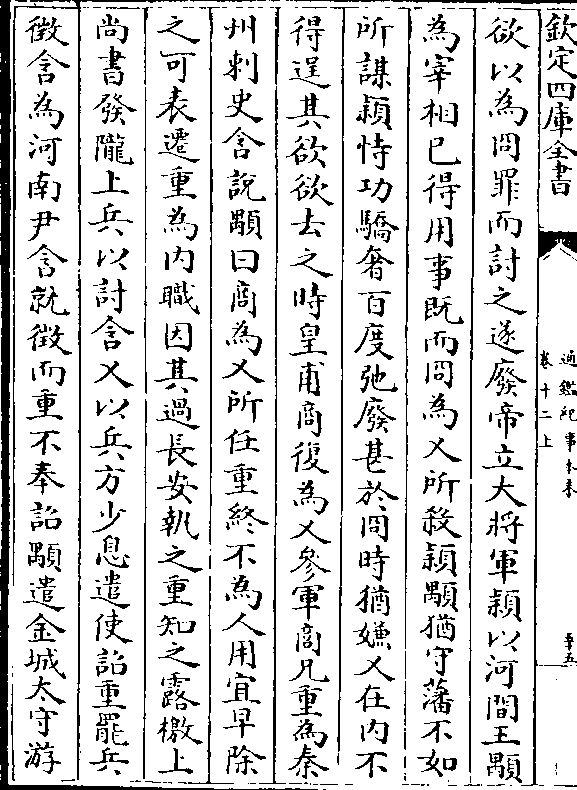 欽定四庫全書
通鑑紀事本末
卷十二上
辛五
欲以為冏罪而討之遂廢帝立大將軍頴以河間王顒
為宰相已得用事既而冏為乂所殺頴顒猶守藩不如
所謀頴恃功驕奢百度弛廢甚於冏時猶嫌乂在内不
得逞其欲欲去之時皇甫商復為乂參軍商兄重為秦
州刺史含說顒曰商為乂所任重終不為人用宜早除
之可表遷重為内職因其過長安執之重知之露檄上
尚書發隴上兵以討含乂以兵方少息遣使詔重罷兵
徵含為河南尹含就徵而重不奉詔顒遣金城太守游